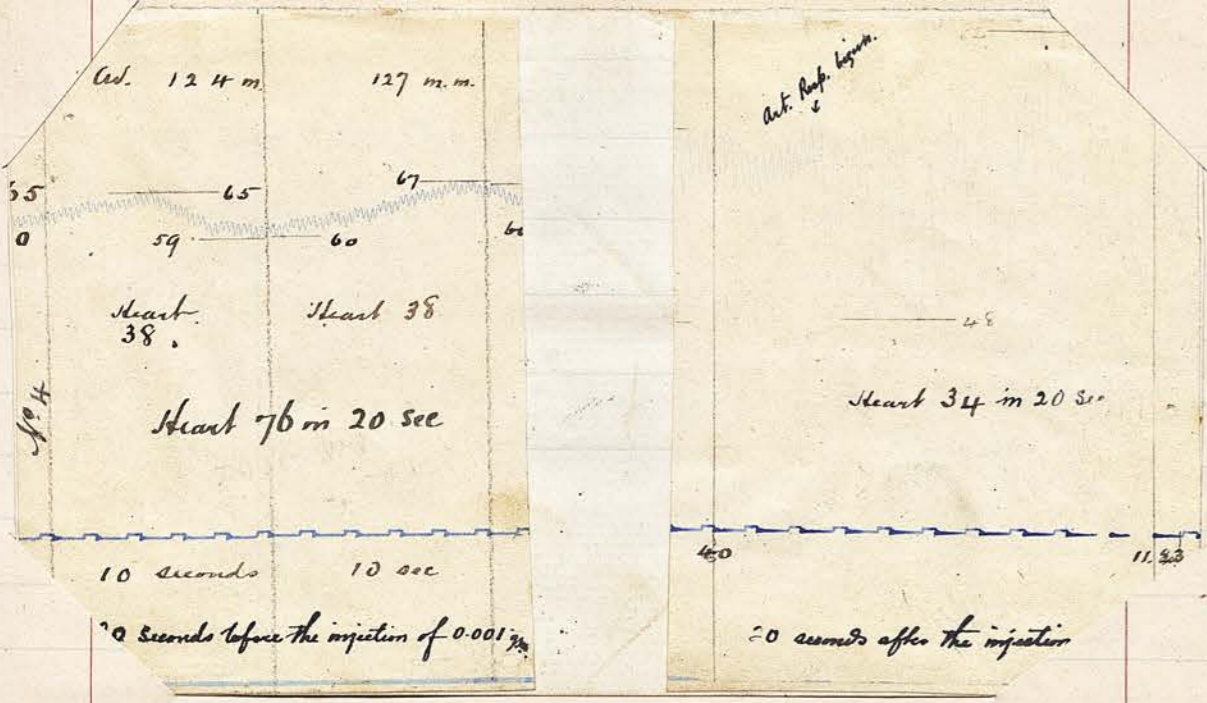 124 m. 127 m.m.
65 67
0 59 60
Heart Heart 38
38.
No. 4
Heart 76 in 20 sec
10 seconds 10 sec
0 seconds before the injection of 0.001 gm.
Art. Resp. begun.
48
Heart 34 in 20 sec
40 11.
20 seconds after the injection